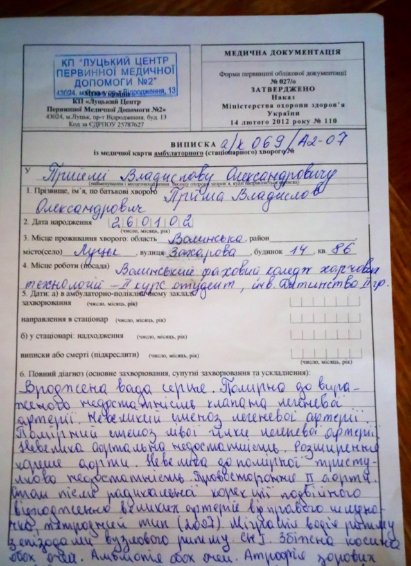 КП "ЛУЦЬКИЙ ЦЕНТР
ПЕРВИННОЇ МЕДИЧНОЇ
ДОПОМОГИ №2"
43024, м.Луцьк, пр-т Відродження, 13
КП «Луцький Центр
Первинної Медичної Допомоги №2»
43024, м.Луцьк, пр-т Відродження, буд. 13
Код ЄДРПОУ 25787627
МЕДИЧНА ДОКУМЕНТАЦІЯ
Форма первинної облікової документації
№ 027/о
ЗАТВЕРДЖЕНО
Наказ
Міністерства охорони здоров'я
України
14 лютого 2012 року № 110
ВИПИСКА а/к 069/А2-07
із медичної карти амбулаторного (стаціонарного) хворого №
У Приймі Владиславу Олександровичу
1. Прізвище, ім'я, по батькові хворого Прийма Владислав
Олександрович
2. Дата народження 260102
(число, місяць, рік)
3. Місце проживання хворого: область Волинська, район
місто(село) Луцьк вулиця Захарова, будинок 14 кв. 86
4. Місце роботи (посада) Волинський фаховий коледж харчових
технологій – II курс студент, інв. дитинства II гр.
5. Дати: а) в амбулаторно-поліклінічному закладі:
захворювання
(число, місяць, рік)
направлення в стаціонар
(число, місяць, рік)
б) у стаціонарі: надходження
(число, місяць, рік)
виписки або смерті (підкреслити)
(число, місяць, рік)
6. Повний діагноз (основне захворювання, супутні захворювання та ускладнення):
Вроджена вада серця. Помірна до вира-
женого недостатність клапана легеневої
артерії. Невеликий стеноз легеневої артерії.
Помірний стеноз лівої гілки легеневої артерії.
Невелика аортальна недостатність. Розширення
кореня аорти. Невелика до помірної триску-
недостатність. Правостороння аорта.
Стан після радикальної корекції подвійного
відходження великих артерій від правого шлуноч-
ка, тип (2007). Міграція водія ритму
з епізодами вузлового ритму. СН I. Збіжна косина
обох очей. Амбліопія обох очей. Атрофія зорових